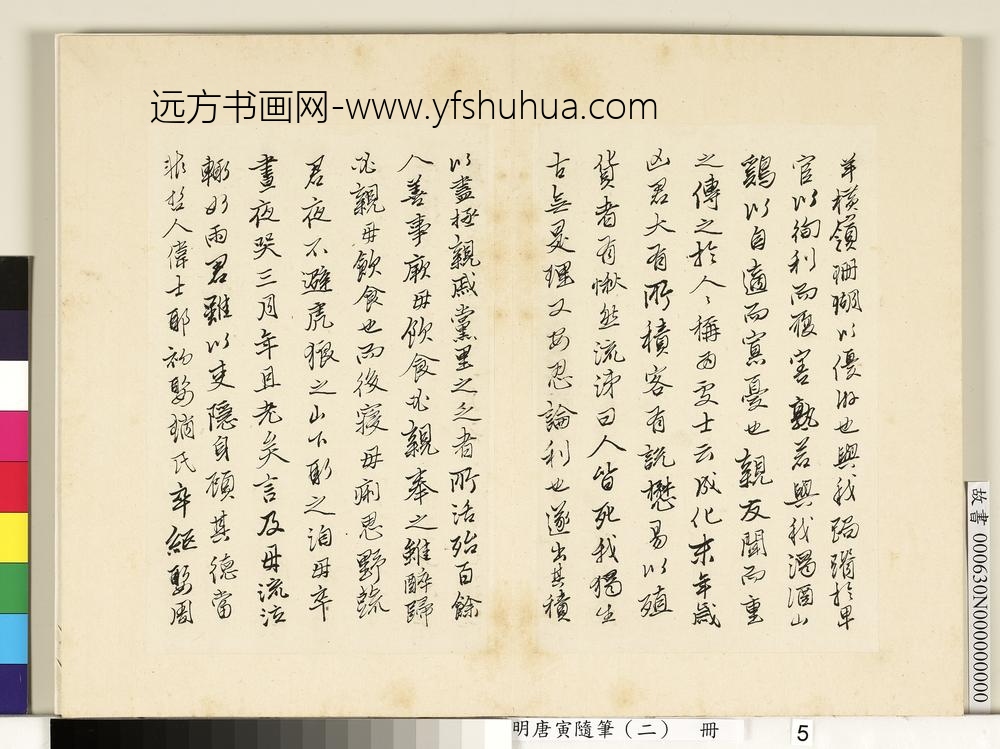 远方书画网-www.yfshuhua.com
羊橫嶺珊瑚以優游也與我跼蹐於卑
官以徇利而罹害孰若與我濁酒山
鷄以自適而寡憂也親友聞而重
之傳之於人人稱為處士云成化末年歲
凶君大有所積客有說懋易以殖
貨者君愀然流涕曰人皆死我獨生
古無是理又安忍論利也遂出其積
以盡極親戚黨里之乏者所活殆百餘
人善事厥母飲食必親奉之雖醉歸
必親母飲食也而後寢母痢思野蔬
君夜不避虎狼之山下取之洎母卒
晝夜哭三月年且老矣言及母流泣
輒如雨君雖以吏隱自頎其德當
非哲人偉士耶初娶氏卒繼娶周
故書 000630N000000000
明唐寅隨筆(二) 冊 5